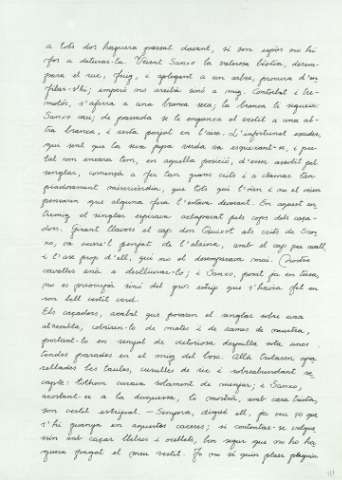 a tots dos haguera passat davant, si son espòs no hi
fos a deturar-la. Veient Sanxo la valerosa bèstia, desem-
para el ruc, fuig, i aplegant a un arbre, procura d'en-
filar-s'hi; emperò no arribà sinó a mig. Contorbat i te-
morós, s'aferra a una branca seca; la branca
Sanxo cau; de passada se li enganxa el vestit a una al-
tra branca, i resta penjat en l'aire. L'infortunat escuder,
que sent que la seva roba verda va esqueixant-se, i pu-
tal com encara tem, en aquella posició, d'ésser assolit pel
senglar, comença a fer tan grans crits i a clamar tan
piadosament misericòrdia, que tots qui l'oien i no el veien
pensaren que alguna fera l'estava devorant. En aquest en-
tremig el senglar expirava aclaparat pels cops dels caça-
dors. Girant llavors el cap don Quixot als crits de San-
xo, va veure'l penjat de l'alzina, amb el cap per avall,
i l'ase prop d'ell, qui no el desemparava mai. Nostre
cavaller anà a deslliurar-lo; i Sanxo, posat ja en terra,
no es preocupà sinó del gros estrip que s'havia fet en
son bell vestit verd.
Els caçadors, acabat que posaren el senglar sobre una
atzembla, cobriren-lo de mates i de rames de murtra,
portant-lo en senyal de victoriosa despulla sota unes
tendes parades en el mig del bosc. Allà trobaren apa-
rellades les taules, curulles de ric i sobreabundant re-
capte: tothom cuidava solament de menjar; i Sanxo,
acostant-se a la duquessa, li mostrà, amb cara trista,
son vestit estripat. — Senyora, digué ell, ja veu ço que
s'hi guanya en aquestes caceres; si contentar-se volgués-
sin amb caçar llebres i ocellets, ben segur que no ho ha-
guera pagat el meu vestit. Jo no sé quin plaer puguin